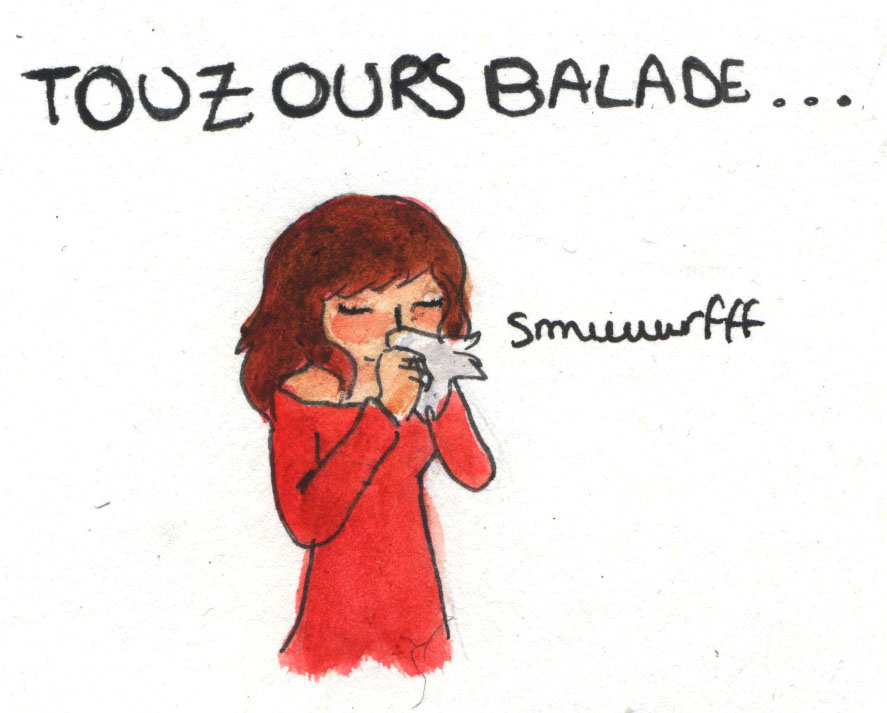 TOUZOURS BALADE...
smuuuurfff